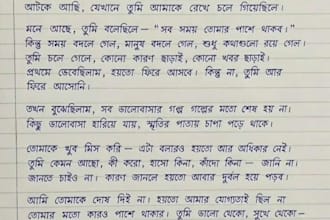 আটকে আছি, যেখানে তুমি আমাকে রেখে চলে গিয়েছিলে।
মনে আছে, তুমি বলেছিলে — “সব সময় তোমার পাশে থাকব।”
কিন্তু সময় বদলে গেল, মানুষ বদলে গেল, শুধু কথাগুলো রয়ে গেল।
তুমি চলে গেলে, কোনো কারণ ছাড়াই, কোনো খবর ছাড়াই।
প্রথমে ভেবেছিলাম, হয়তো ফিরে আসবে। কিন্তু না, তুমি আর
ফিরে আসোনি।
তখন বুঝেছিলাম, সব ভালোবাসার গল্প গল্পের মতো শেষ হয় না।
কিছু ভালোবাসা হারিয়ে যায়, স্মৃতির পাতায় চাপা পড়ে থাকে।
তোমাকে খুব মিস করি — এটা বলারও হয়তো আর অধিকার নেই।
তুমি কেমন আছো, কী করো, হাসো কিনা, কাঁদো কিনা — জানি না।
জানতে চাইও না। কারণ জানলে হয়তো আবার দুর্বল হয়ে পড়ব।
আমি তোমাকে দোষ দিই না। হয়তো আমার যোগ্যতাই ছিল না
তোমার মতো কারও পাশে থাকার। তুমি ভালো থেকো, সুখে থেকো —